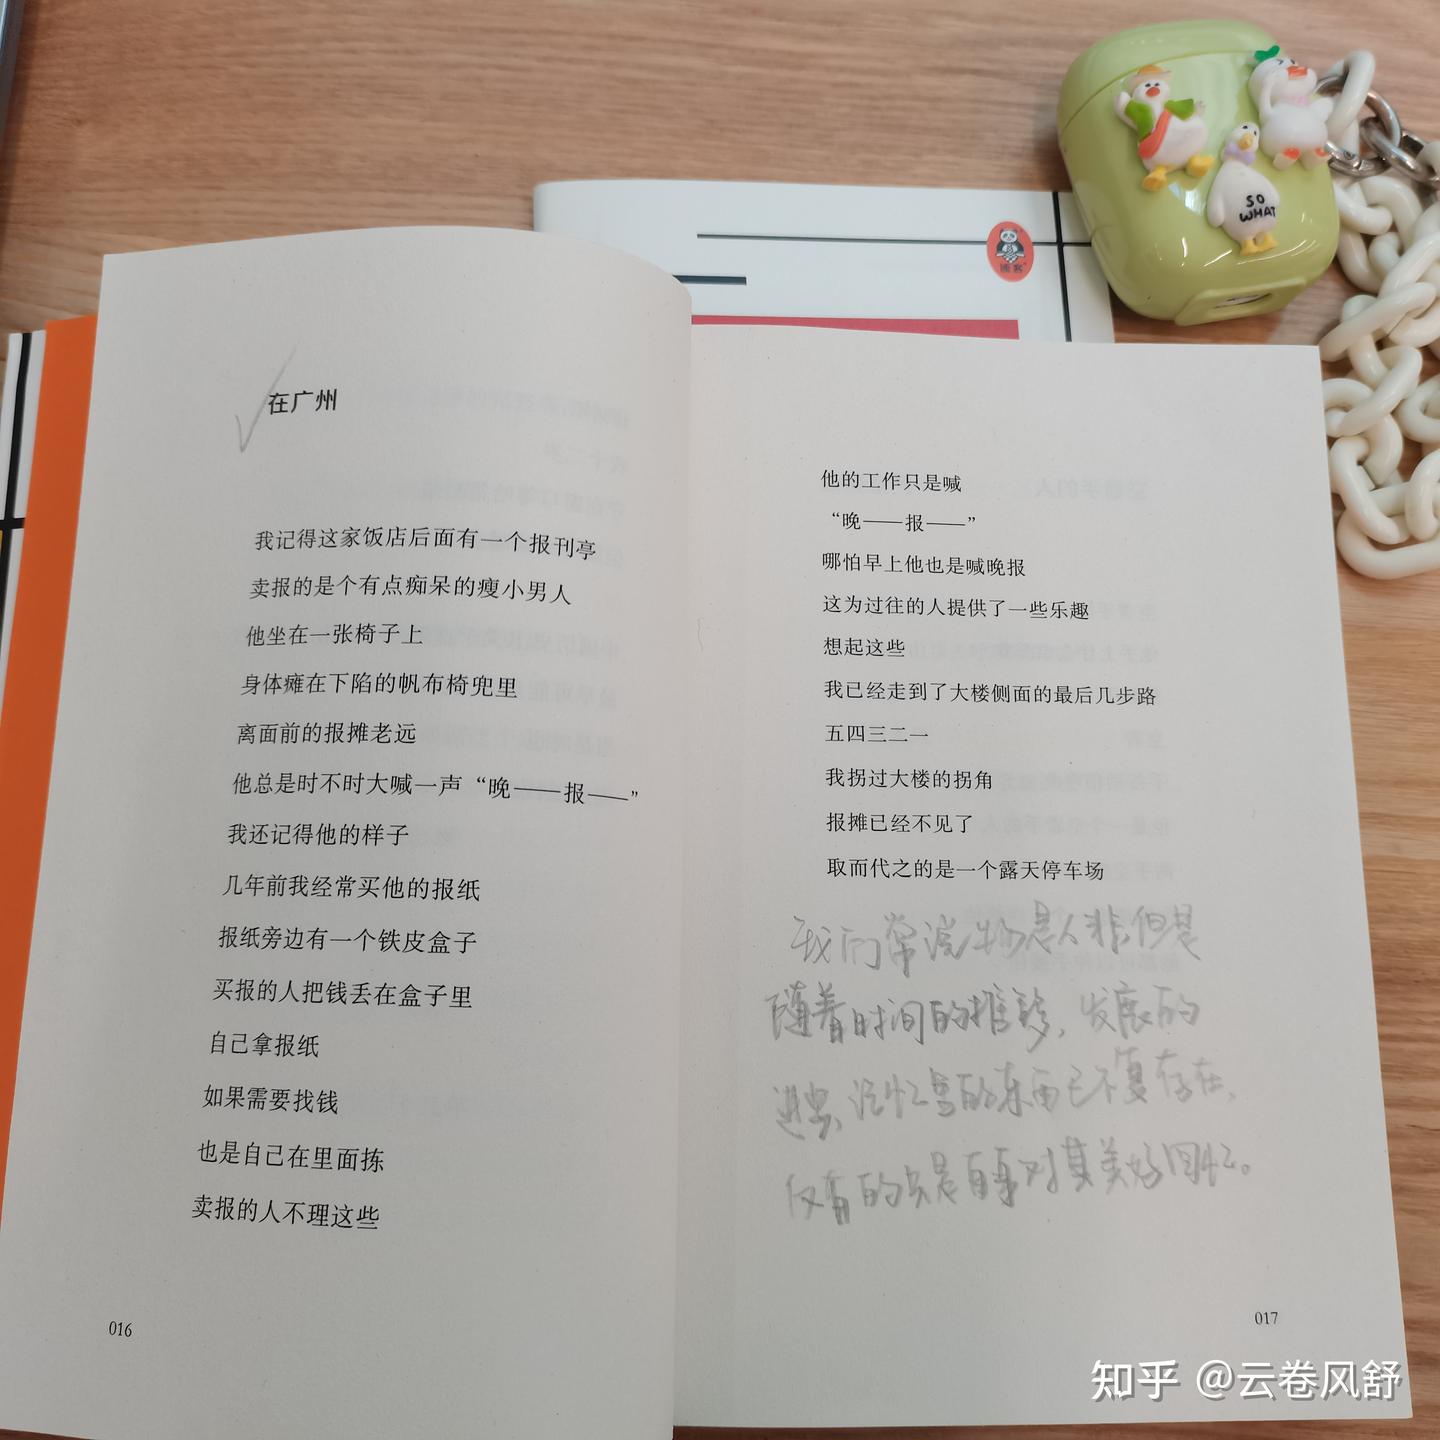 在广州
我记得这家饭店后面有一个报刊亭
卖报的是个有点痴呆的瘦小男人
他坐在一张椅子上
身体瘫在下陷的帆布椅兜里
离面前的报摊老远
他总是时不时大喊一声“晚——报——”
我还记得他的样子
几年前我经常买他的报纸
报纸旁边有一个铁皮盒子
买报的人把钱丢在盒子里
自己拿报纸
如果需要找钱
也是自己在里面拣
卖报的人不理这些
016
他的工作只是喊
“晚——报——”
哪怕早上他也是喊晚报
这为过往的人提供了一些乐趣
想起这些
我已经走到了大楼侧面的最后几步路
五四三二一
我拐过大楼的拐角
报摊已经不见了
取而代之的是一个露天停车场
我们常说物是人非但是
随着时间的推移，发展的
进步，记忆里的东西已不复存在，
仅有的只是自身对其美好回忆。
017
读客
SO
WHAT
知乎 @云卷风舒